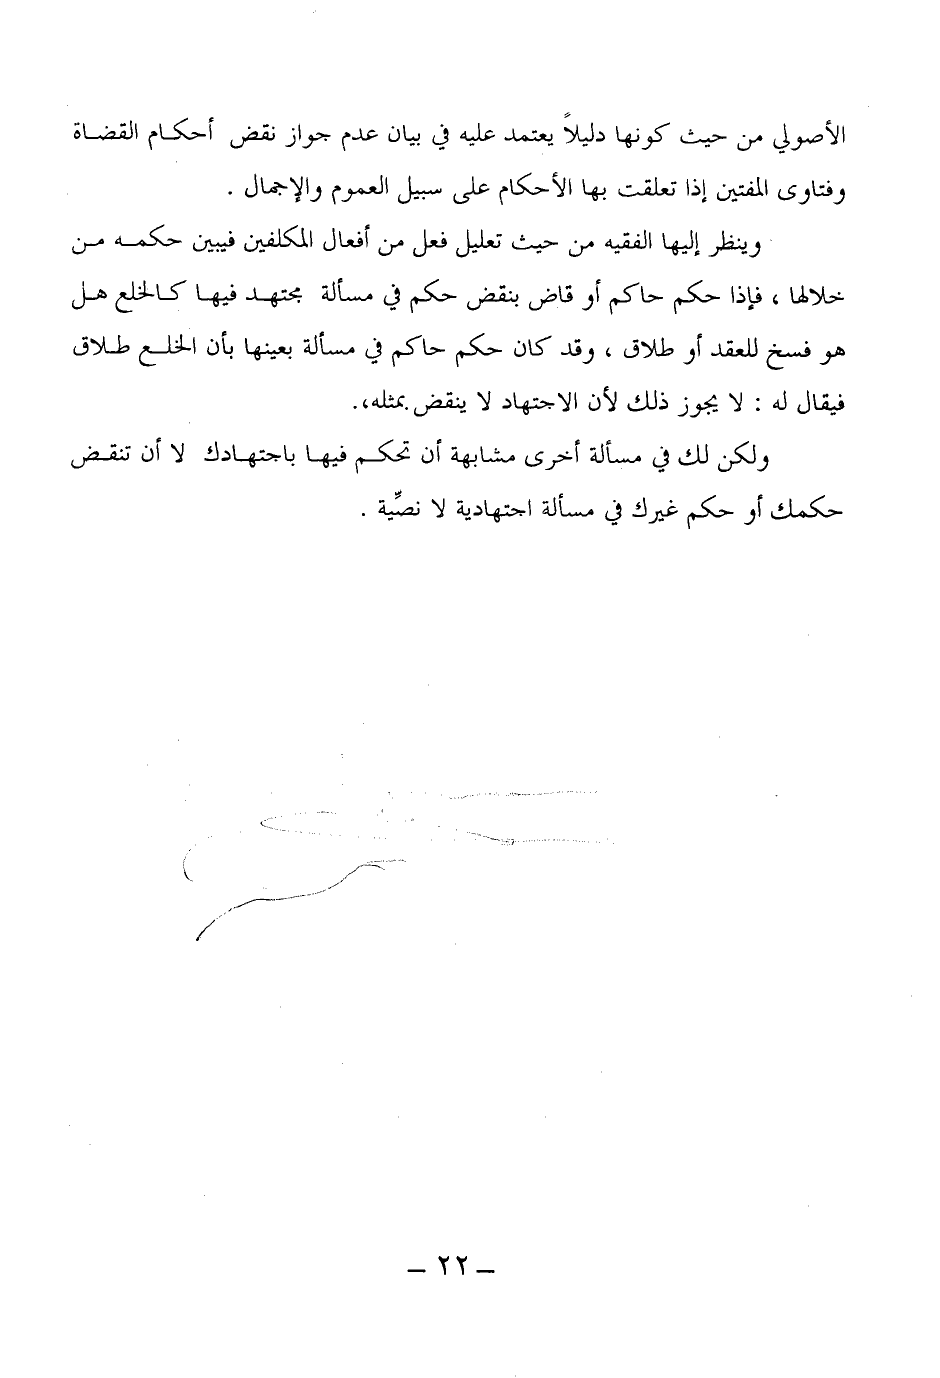 الأصولي من حيث كونها دليلاً يعتمد عليه في بيان عدم جواز نقض أحكام القضاة
وفتاوى المفتين إذا تعلقت بها الأحكام على سبيل العموم والإجمال .
وينظر إليها الفقيه من حيث تعليل فعل من أفعال المكلفين فيبين حكمه من
خلالها ، فإذا حكم حاكم أو قاض بنقض حكم في مسألة مجتهد فيها كالخلع هل
هو فسخ للعقد أو طلاق ، وقد كان حكم حاكم في مسألة بعينها بأن الخلع طلاق
فيقال له : لا يجوز ذلك لأن الاجتهاد لا ينقض بمثله،.
ولكن لك في مسألة أخرى مشابهة أن تحكم فيها باجتهادك لا أن تنقض
حكمك أو حكم غيرك في مسألة اجتهادية لا نصِّية .
– ٢٢ –